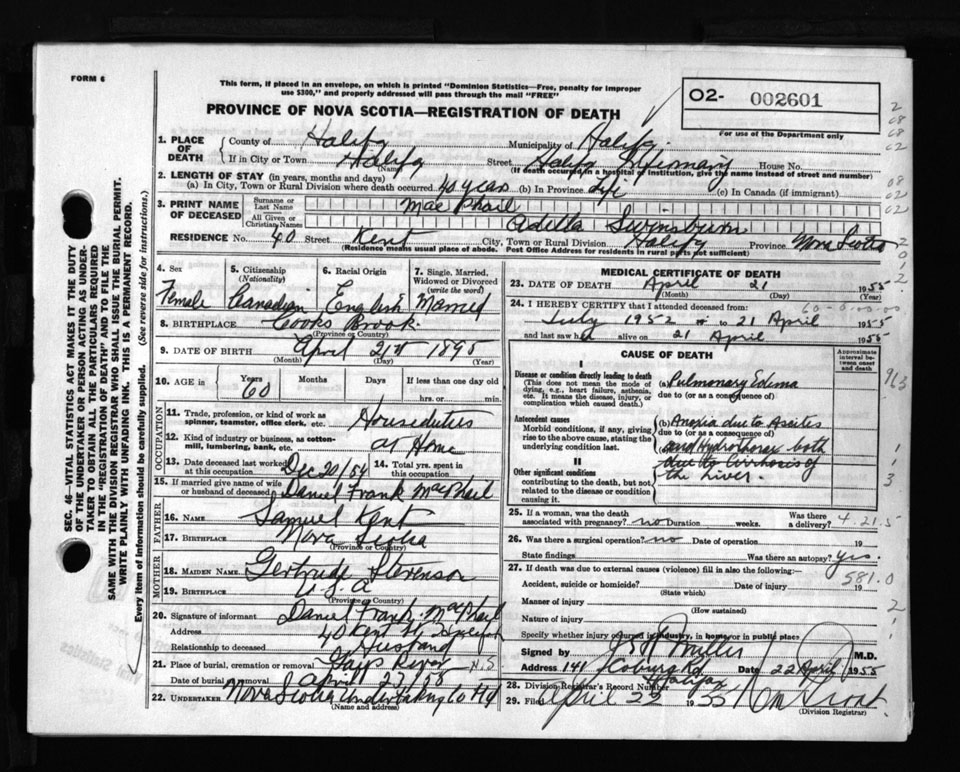 FORM 6
This form, if placed in an envelope, on which is printed "Dominion Statistics—Free, penalty for improper
use $300," and properly addressed will pass through the mail "FREE"
PROVINCE OF NOVA SCOTIA—REGISTRATION OF DEATH
O2- 002601
For use of the Department only
1. PLACE OF DEATH
County of Halifax Municipality of Halifax
If in City or Town Halifax Street Halifax Infirmary House No.
(Name) (If death occurred in a hospital or institution, give the name instead of street and number)
2. LENGTH OF STAY (in years, months and days)
(a) In City, Town or Rural Division where death occurred 40 years (b) In Province Life (c) In Canada (if immigrant)
3. PRINT NAME OF DECEASED
Surname or Last Name MacPhail
All Given or Christian Names Adella Swinsburn
RESIDENCE No. 40 Street Kent City, Town or Rural Division Halifax Province Nova Scotia
(Residence means usual place of abode. Post Office Address for residents in rural parts not sufficient)
4. Sex
Female
5. Citizenship
(Nationality)
Canadian
6. Racial Origin
English
7. Single, Married,
Widowed or Divorced
(write the word)
Married
8. BIRTHPLACE Cooks Brook
(Province or Country)
9. DATE OF BIRTH April 2nd 1895
(Month) (Day) (Year)
10. AGE in
Years Months Days If less than one day old
60 hrs. or min.
OCCUPATION
11. Trade, profession, or kind of work as
spinner, teamster, office clerk, etc. Houseduties
12. Kind of industry or business, as cotton-
mill, lumbering, bank, etc. at Home
13. Date deceased last worked
at this occupation Dec 20/54
14. Total yrs. spent in
this occupation
15. If married give name of wife
or husband of deceased Daniel Frank MacPhail
FATHER
16. NAME Samuel Kent
17. BIRTHPLACE Nova Scotia
(Province or Country)
MOTHER
18. MAIDEN NAME Gertrude Stevenson
19. BIRTHPLACE U.S.A
(Province or Country)
20. Signature of informant Daniel Frank MacPhail
Address 40 Kent St.
Relationship to deceased Husband
21. Place of burial, cremation or removal Gays River N.S
Date of burial or removal April 23/55
22. UNDERTAKER Nova Scotia Undertaking Co Ltd
(Name and address)
MEDICAL CERTIFICATE OF DEATH
23. DATE OF DEATH April 21 1955
(Month) (Day) (Year)
24. I HEREBY CERTIFY that I attended deceased from:
July 1952 to 21 April 1955
and last saw her alive on 21 April 1955
CAUSE OF DEATH
Approximate
interval between
onset and death
I
Disease or condition directly leading to death
(This does not mean the mode of
dying, e.g., heart failure, asthenia,
etc. It means the disease, injury, or
complication which caused death.)
(a) Pulmonary Edema
due to (or as a consequence of)
Antecedent causes
Morbid conditions, if any, giving
rise to the above cause, stating the
underlying condition last.
(b) Anoxia due to Ascites
due to (or as a consequence of)
and Hydrothorax both
due to cirrhosis of
the Liver.
II
Other significant conditions
contributing to the death, but not
related to the disease or condition
causing it.
25. If a woman, was the death
associated with pregnancy? no Duration weeks. Was there a delivery?
4.21.5
26. Was there a surgical operation? no Date of operation 19
State findings Was there an autopsy? yes.
27. If death was due to external causes (violence) fill in also the following:—
581.0
Accident, suicide or homicide? Date of injury 19
(State which)
Manner of injury
(How sustained)
Nature of injury
Specify whether injury occurred in industry, in home or in public place
Signed by Miller M.D.
Address 141 Coburg Rd Halifax Date 22 April 1955
28. Division Registrar's Record Number
29. Filed April 22 1955
(Division Registrar)
SEC. 46—VITAL STATISTICS ACT MAKES IT THE DUTY
OF THE UNDERTAKER OR PERSON ACTING AS UNDER-
TAKER TO OBTAIN ALL THE PARTICULARS REQUIRED
IN THE "REGISTRATION OF DEATH" AND TO FILE THE
SAME WITH THE DIVISION REGISTRAR WHO SHALL ISSUE THE BURIAL PERMIT.
WRITE PLAINLY WITH UNFADING INK. THIS IS A PERMANENT RECORD.
Every item of Information should be carefully supplied. (See reverse side for instructions.)